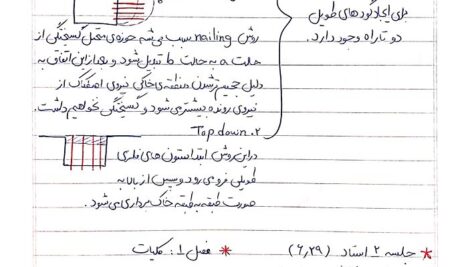 برای ایجاد گودهای طویل
دو تا راه وجود دارد.
روش nailing سبب می‌شه حوزه‌ی محتمل گسیختگی از
حالت a به حالت b تبدیل شود و بعد از این اتفاق به
دلیل حجیم‌تر شدن منطقه‌ی خاکی نیروی اصطکاک از
نیروی رونده بیشتر می‌شود و گسیختگی نخواهیم داشت.
۲. Top down
در این روش ابتدا ستون‌های فلزی
طویلی فرو می‌رود و سپس از بالا به
صورت طبقه به طبقه خاک‌برداری می‌شود.
* جلسه ۲ استاد (۶,۲۹) * فصل ۱: کلیات